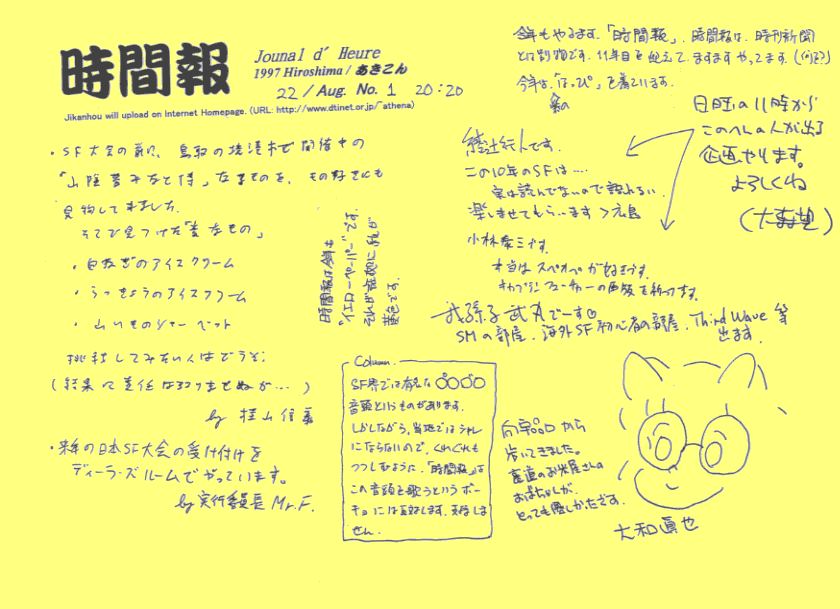 時間報
Jounal d' Heure
1997 Hiroshima / あきこん
22 / Aug. No. 1 20:20
Jikanhou will upload on Internet Homepage. (URL: http://www.dtinet.or.jp/~athena)
・SF大会の前に、鳥取の境港市で開催中の
「山陰夢みなと博」なるものを、もの好きにも
見物してきました。
そこで見つけた「変なもの」
・白ねぎのアイスクリーム
・らっきょうのアイスクリーム
・山いものシャーベット
挑戦してみたい人はどうぞ。
(結果に責任は
by
・来年の日本SF大会の受け付けを
ディーラーズルームでやっています。
by 実行委員長 Mr.F.
時間報は今年も
"イエローペーパー"です。
それが証拠に紙が
黄色です。
Column
SF界では有名な○○○○
音頭というものがあります。
しかしながら、当地ではシャレ
にならないので、くれぐれも
つつしむように。「時間報」は
この音頭を歌うという
には
せん。
今年もやるます。「時間報」。時間報は、時刊新聞
とは別物です。11年目を迎えて、ますますやってます。(何を?)
今年は、「はっぴ」を着ています。
日時の11時から
このへんの人が出る
企画やります。
よろしくね
綾辻行人です。
この10年のSFは‥‥
実は読んでないので語れない。
楽しませてもらいます>広島
小林泰三です。
本当はスペオペが好きです。
我孫子武丸でーす♡
SMの部屋、海外SF初心者の部屋、Third Wave 等
出ます。
向宇品口から
歩いてきました。
産直のお米屋さんの
おばちゃんが、
とっても優しかったです。
大和眞也